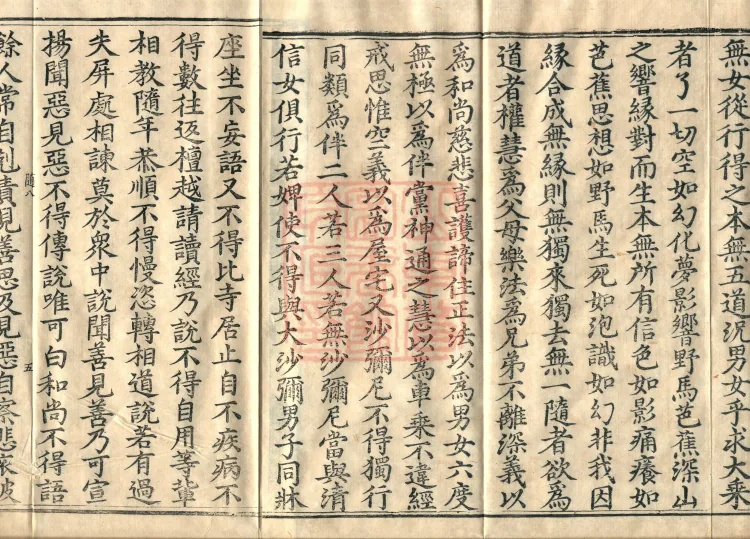 無女從行得之本無五道況男女乎求大乘
者了一切空如幻化夢影響野馬芭蕉深山
之響緣對而生本無所有信色如影痛癢如
芭蕉思想如野馬生死如泡識如幻非我因
緣合成無緣則無獨來獨去無一隨者欲為
道者權慧為父母樂法為兄弟不離深義以
為和尚慈悲喜護諦住正法以為男女六度
無極以為伴黨神通之慧以為車乘不違經
戒思惟空義以為屋宅又沙彌尼不得獨行
同類為伴二人若三人若無沙彌尼當與清
信女俱行若婢使不得與大沙彌男子同牀
座坐不妄語又不得比寺居止自不疾病不
得數往返檀越請讀經乃說不得自用等輩
相教隨年恭順不得慢恣轉相道說若有過
失屏處相諫莫於眾中說聞善見善乃可宣
揚聞惡見惡不得傳說唯可白和尚不得語
隨八 五
餘人常自剋責見善思及見惡自察悲哀彼